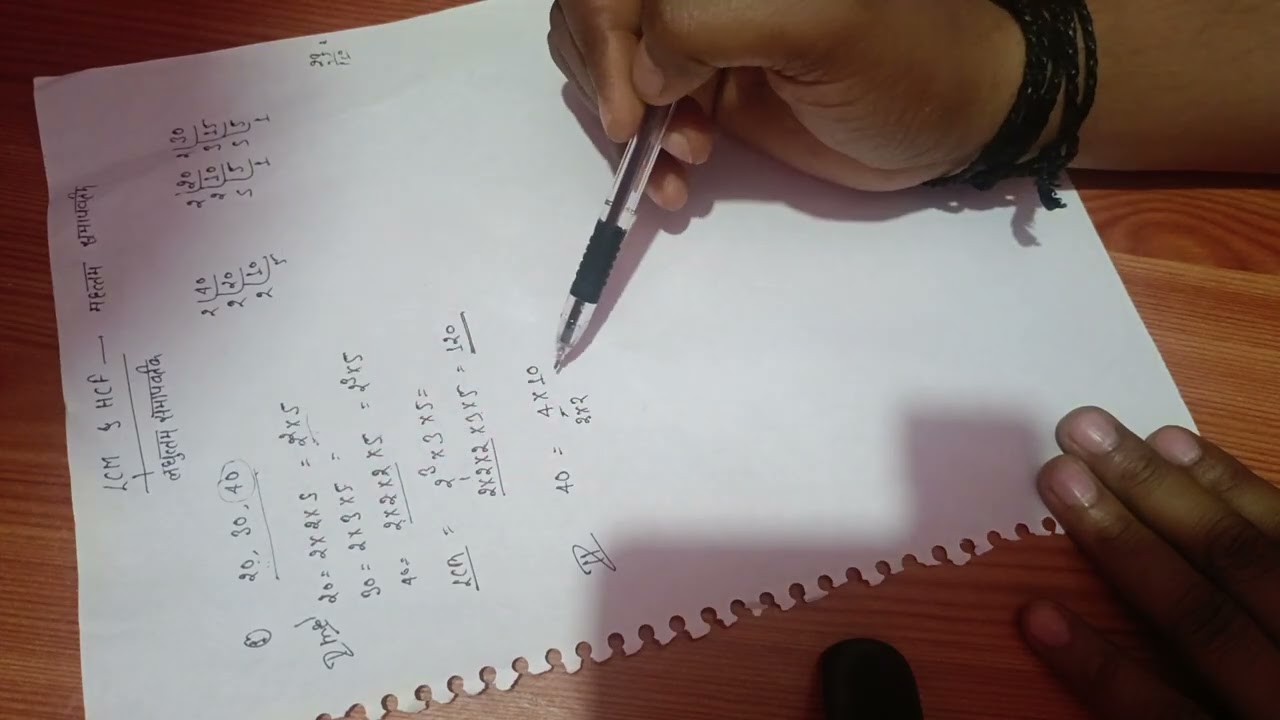 LCM & HCF — महत्तम समापवर्तक
लघुत्तम समापवर्तक
20, 30, 40
2 40
2 20
2 10
5
2 20
2 10
5 5
1
2 30
3 15
5 5
1
20 = 2×2×5 = 2²×5
30 = 2×3×5 =
40 = 2×2×2×5 = 2³×5
LCM = 2³×3×5 =
2×2×2×3×5 = 120
40 = 4×10
2×2